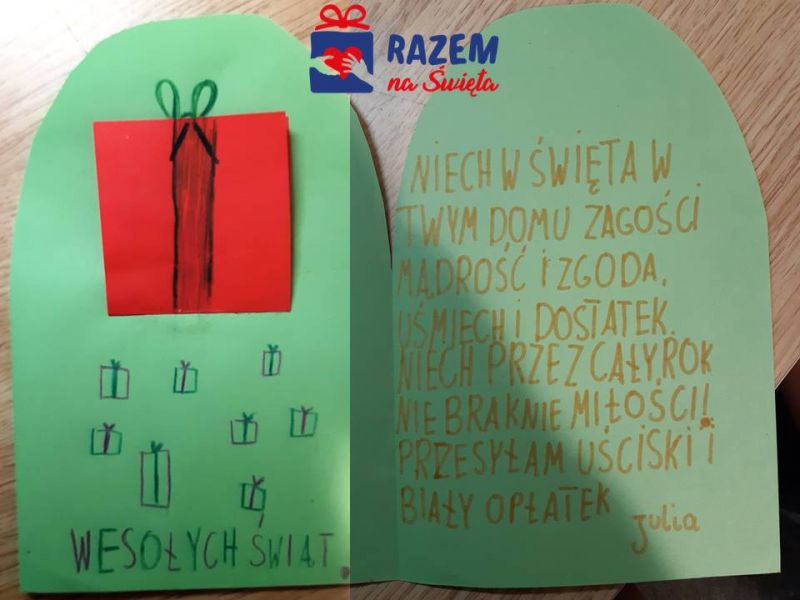 RAZEM
na Święta
WESOŁYCH ŚWIĄT.
NIECH W ŚWIĘTA W
TWYM DOMU ZAGOŚCI
MĄDROŚĆ I ZGODA,
UŚMIECH I DOSTATEK.
NIECH PRZEZ CAŁY ROK
NIE BRAKNIE MIŁOŚCI!
PRZESYŁAM UŚCISKI I
BIAŁY OPŁATEK
Julia